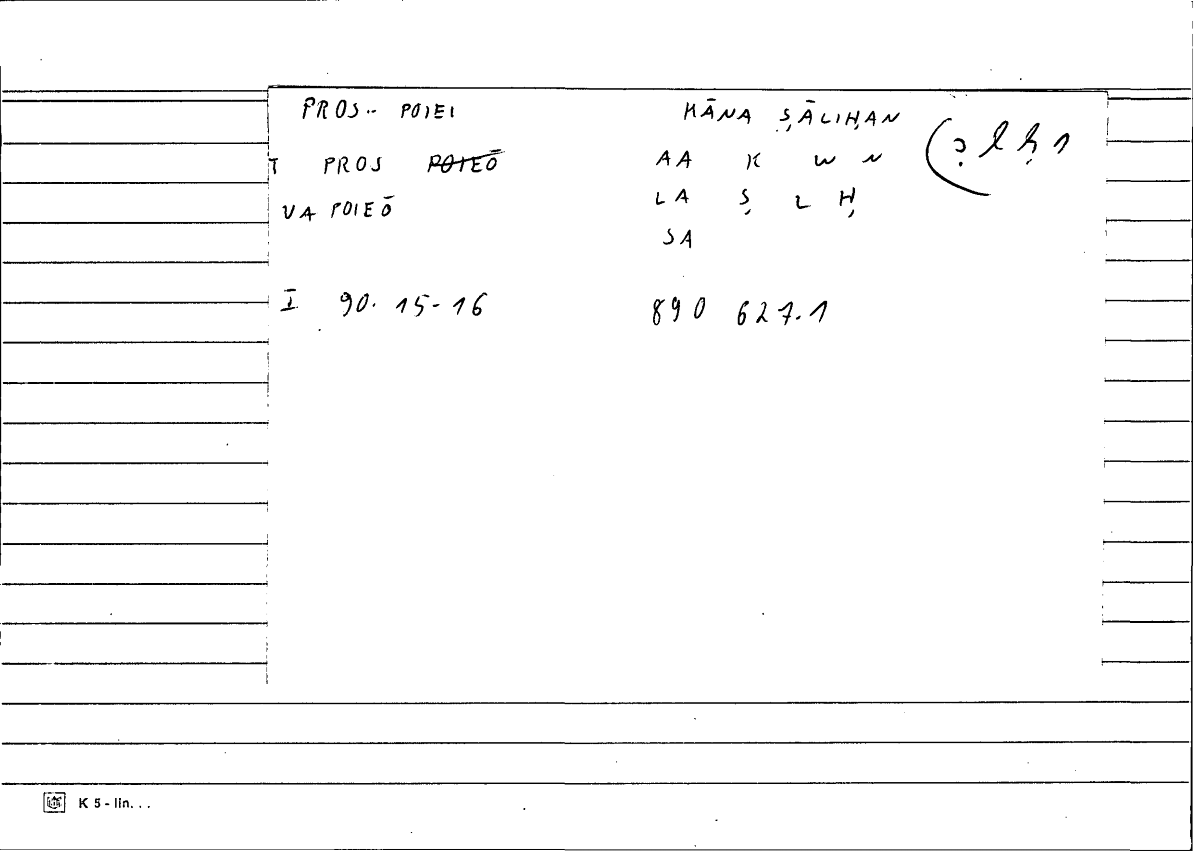 PROS-- POIEI KĀNA ṢĀLIḤAN
T PROS POIEŌ AA K W N
VA POIEŌ LA Ṣ L Ḥ
SA
I 90. 15-16 890 627.1
K 5 - lin. . .